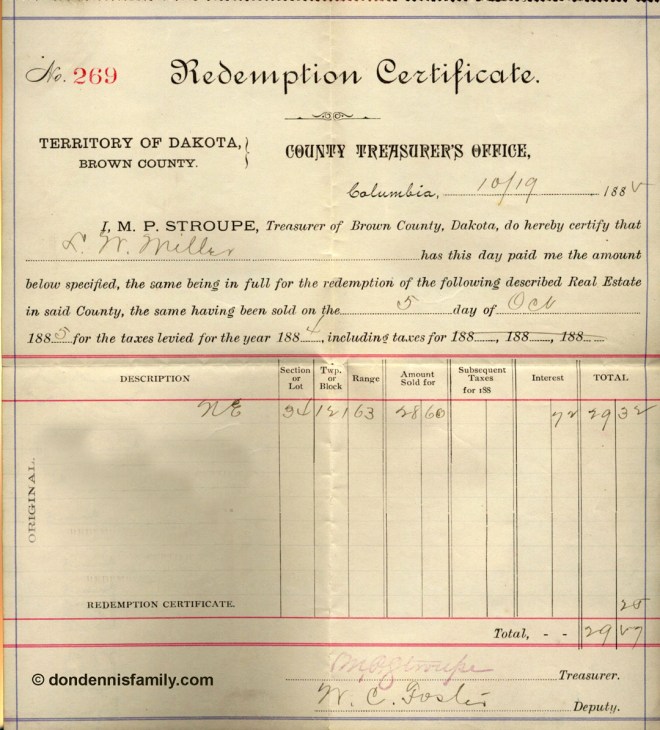 No. 269 Redemption Certificate.
TERRITORY OF DAKOTA,
BROWN COUNTY.
COUNTY TREASURER'S OFFICE,
Columbia, 10/19 1885
I, M. P. STROUPE, Treasurer of Brown County, Dakota, do hereby certify that
L. W. Miller has this day paid me the amount
below specified, the same being in full for the redemption of the following described Real Estate
in said County, the same having been sold on the 5 day of Oct
1885 for the taxes levied for the year 1884, including taxes for 188 , 188 , 188
DESCRIPTION Section or Lot Twp. or Block Range Amount Sold for Subsequent Taxes for 188 Interest TOTAL
NE 34 121 63 28 60 72 29 32
ORIGINAL.
REDEMPTION CERTIFICATE. 25
Total, - - 29 57
M P Stroupe Treasurer.
W. C. Foster Deputy.
© dondennisfamily.com